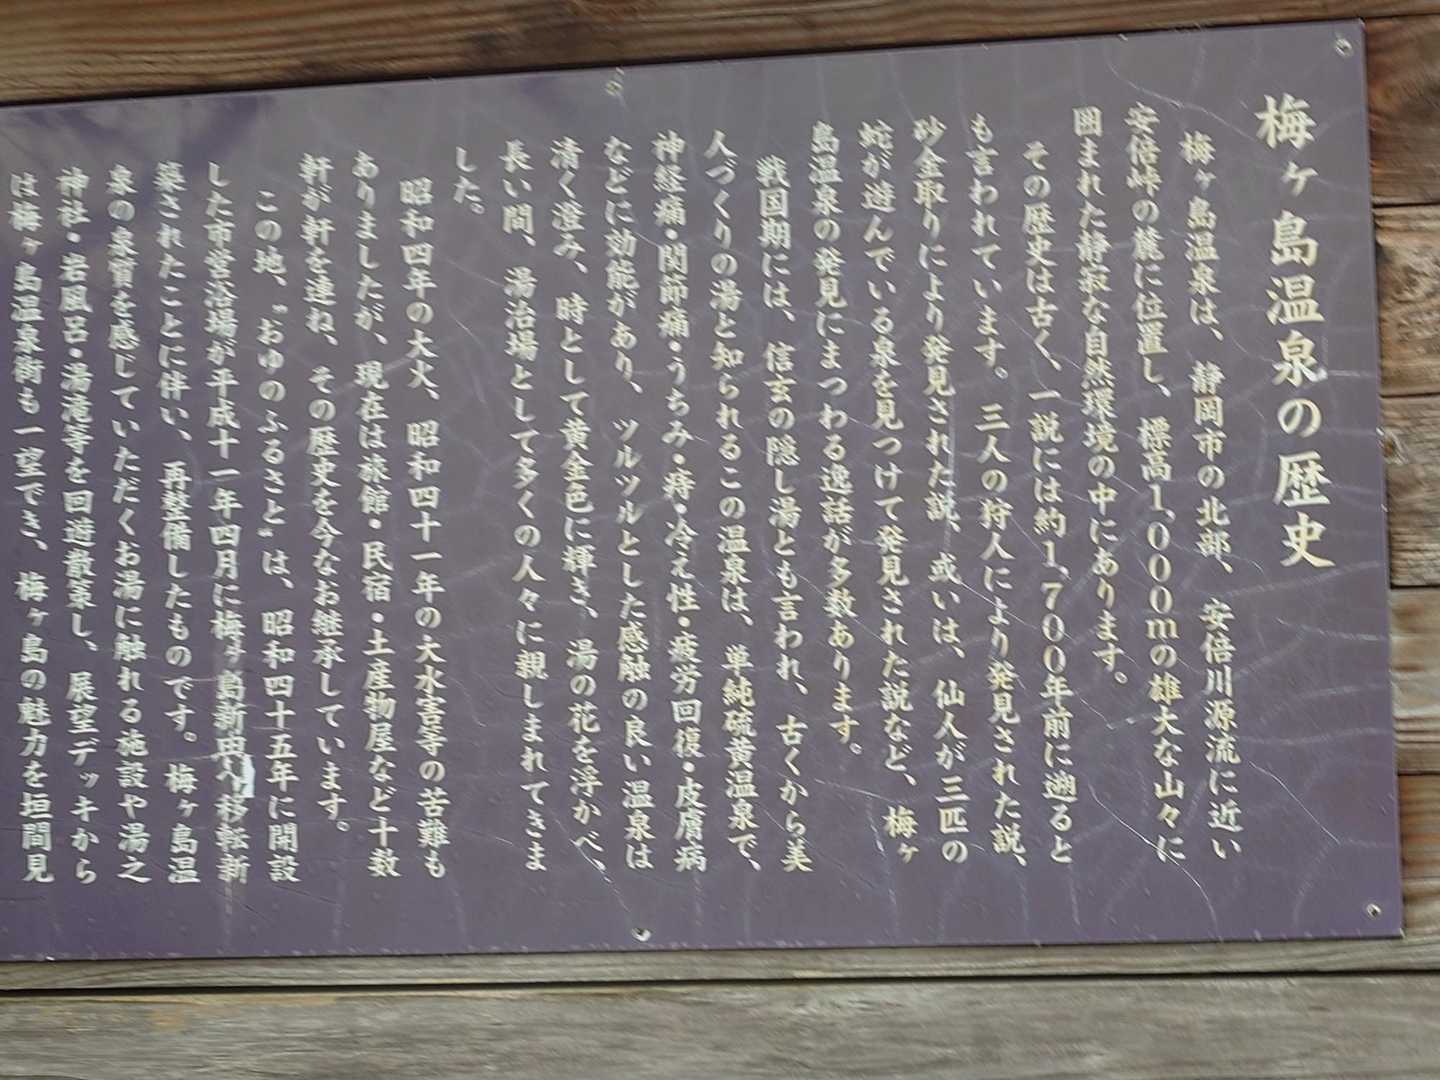 梅ヶ島温泉の歴史
梅ヶ島温泉は、静岡市の北部、安倍川源流に近い
安倍峠の麓に位置し、標高1,000mの雄大な山々に
囲まれた静寂な自然環境の中にあります。
その歴史は古く、一説には約1,700年前に遡ると
も言われています。三人の狩人により発見された説、
砂金取りにより発見された説、或いは、仙人が三匹の
蛇が遊んでいる泉を見つけて発見された説など、梅ヶ
島温泉の発見にまつわる逸話が多数あります。
戦国期には、信玄の隠し湯とも言われ、古くから美
人づくりの湯と知られるこの温泉は、単純硫黄温泉で、
神経痛・関節痛・うちみ・痔・冷え性・疲労回復・皮膚病
などに効能があり、ツルツルとした感触の良い温泉は
清く澄み、時として黄金色に輝き、湯の花を浮かべ、
長い間、湯治場として多くの人々に親しまれてきま
した。
昭和四年の大火、昭和四十一年の大水害等の苦難も
ありましたが、現在は旅館・民宿・土産物屋など十数
軒が軒を連ね、その歴史を今なお継承しています。
この地、"おゆのふるさと"は、昭和四十五年に開設
した市営浴場が平成十一年四月に梅ヶ島新田へ移転新
築されたことに伴い、再整備したものです。梅ヶ島温
泉の泉質を感じていただくお湯に触れる施設や湯之
神社・岩風呂・湯滝等を回遊散策し、展望デッキから
は梅ヶ島温泉街も一望でき、梅ヶ島の魅力を垣間見